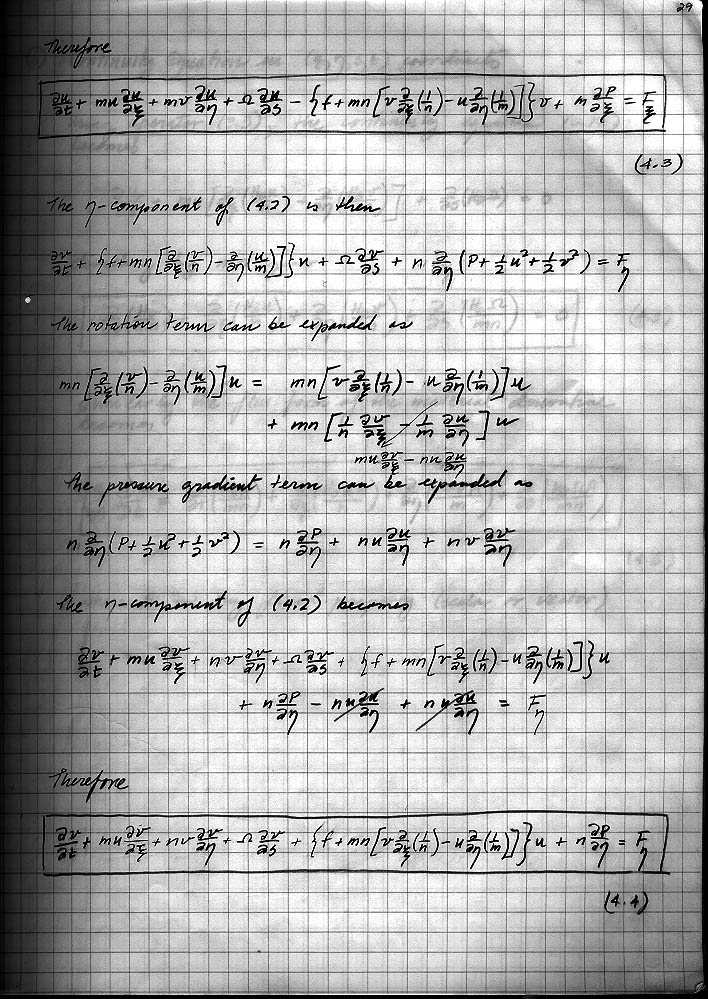 29
Therefore
∂u/∂t + mu ∂u/∂ξ + mv ∂u/∂η + Ω ∂u/∂S − {f + mn [v ∂/∂ξ (1/n) − u ∂/∂η (1/m)]} v + m ∂P/∂ξ = F_ξ
(4.3)
The η-component of (4.2) is then
∂v/∂t + {f + mn [∂/∂ξ (v/n) − ∂/∂η (u/m)]} u + Ω ∂v/∂S + n ∂/∂η (P + 1/2 u² + 1/2 v²) = F_η
The rotation term can be expanded as
mn [∂/∂ξ (v/n) − ∂/∂η (u/m)] u = mn [v ∂/∂ξ (1/n) − u ∂/∂η (1/m)] u
+ mn [1/n ∂v/∂ξ − 1/m ∂u/∂η] u
mu ∂v/∂ξ − nu ∂u/∂η
The pressure gradient term can be expanded as
n ∂/∂η (P + 1/2 u² + 1/2 v²) = n ∂P/∂η + nu ∂u/∂η + nv ∂v/∂η
The η-component of (4.2) becomes
∂v/∂t + mu ∂v/∂ξ + nv ∂v/∂η + Ω ∂v/∂S + {f + mn [v ∂/∂ξ (1/n) − u ∂/∂η (1/m)]} u
+ n ∂P/∂η − nu ∂u/∂η + nu ∂u/∂η = F_η
Therefore
∂v/∂t + mu ∂v/∂ξ + nv ∂v/∂η + Ω ∂v/∂S + {f + mn [v ∂/∂ξ (1/n) − u ∂/∂η (1/m)]} u + n ∂P/∂η = F_η
(4.4)